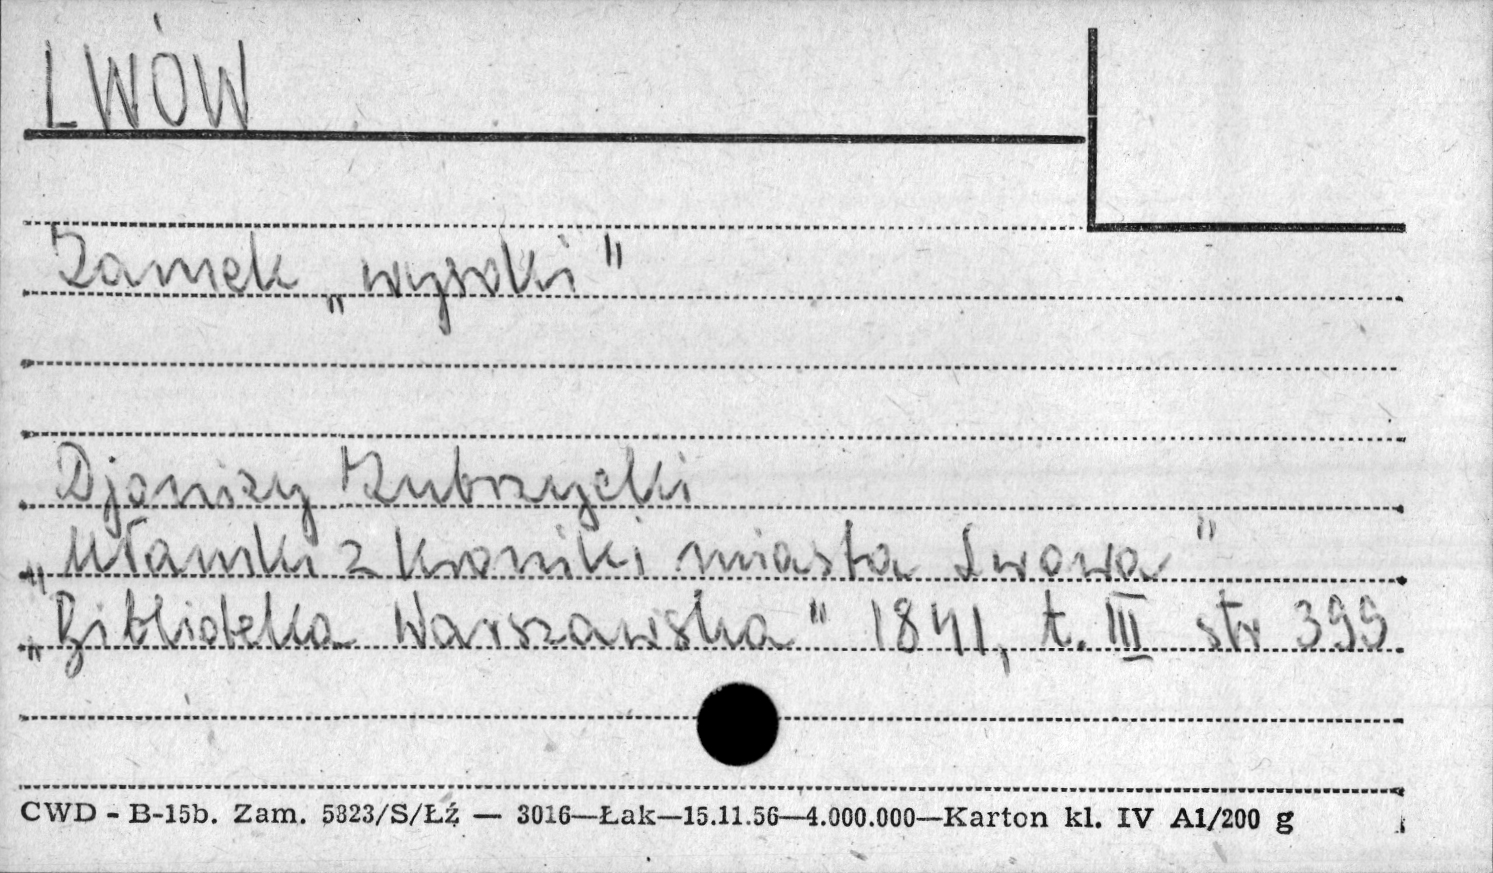 LWÓW
Zamek „wysoki"
Djonizy Zubrzycki
„Ułamki z kroniki miasta Lwowa"
„Biblioteka Warszawska" 1841, t. III str 399
CWD - B-15b. Zam. 5823/S/Łź — 3016—Łak—15.11.56—4.000.000—Karton kl. IV A1/200 g